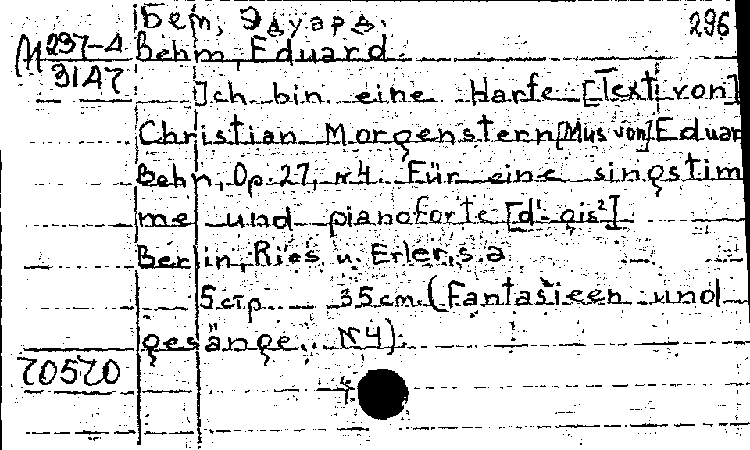 Бем, Эдуард. 296
М 237-4 Behm, Eduard.
3147
Ich bin eine Harfe [Text von]
Christian Morgenstern [Mus von] Eduar
Behn, Op. 27, N4. Für eine singstim
me und pianoforte [d¹-gis²]
Berlin, Ries u. Erler, s.a
5 стр. 35 cm. (Fantasieen und
gesänge. N4).
70570